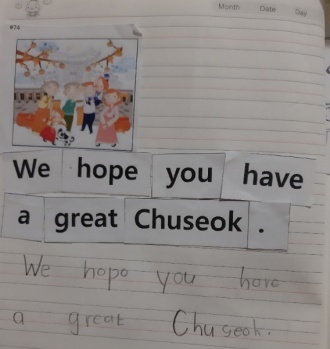 Month Date Day
#74
We hope you have
a great Chuseok .
We hope you have
a great Chuseok.